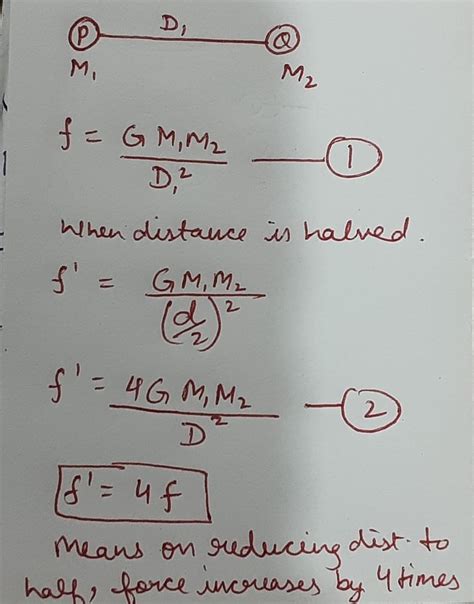 P D₁ Q
M₁ M₂
f = G M₁M₂ / D₁² —— 1
When distance is halved.
f' = GM₁M₂ / (d/2)²
f' = 4G M₁M₂ / D² —— 2
f' = 4f
Means on reducing dist. to
half, force increases by 4 times